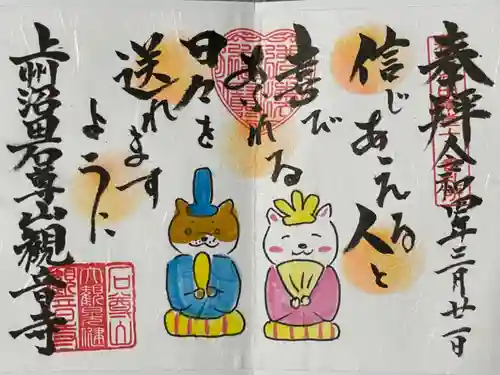 奉拝 令和四年三月廿一日
信じあえる人と
喜び
あふれる
日々を
送れます
ように
上州沼田石尊山観音寺